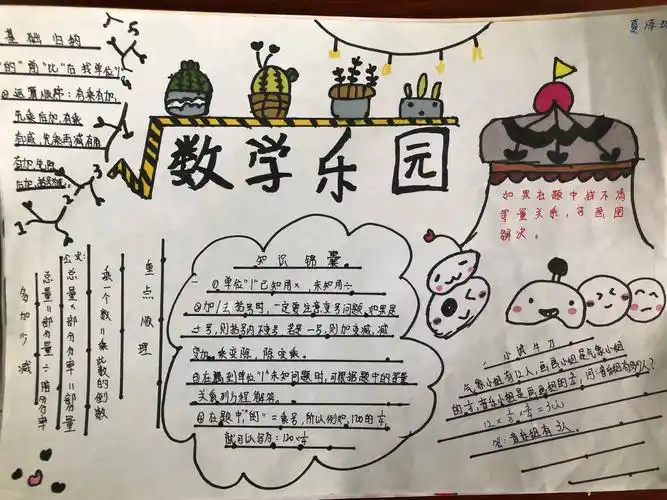 基础归纳
"的"前"比"后找单位"1"
②运算顺序：有乘有加，
先乘后加，有乘
有减，先乘再减，有
数学乐园
如果在题中找不清
等量关系，可画图
解决。
知识锦囊
①单位"1"已知用×，未知用÷
②加/去括号时，一定要注意变号问题，如果是
+号，则括号内不变号，若是-号，则加变减，减
变加，乘变除，除变乘。
③在遇到单位"1"未知问题时，可根据题中的等量
关系列方程解答。
④在题中"的"=乘号，所以例如，120的
就可以写为：120×
重点整理
除一个数=乘此数的倒数
公式：
总量×部分分率=部分量
总量=部分量÷部分分率
多加少减
小试牛刀
气象小组有12人，画画小组是气象小组
的1/3，音乐小组是画画组的，问：音乐组有多少人？
=3(人)
答：音乐组有3人。